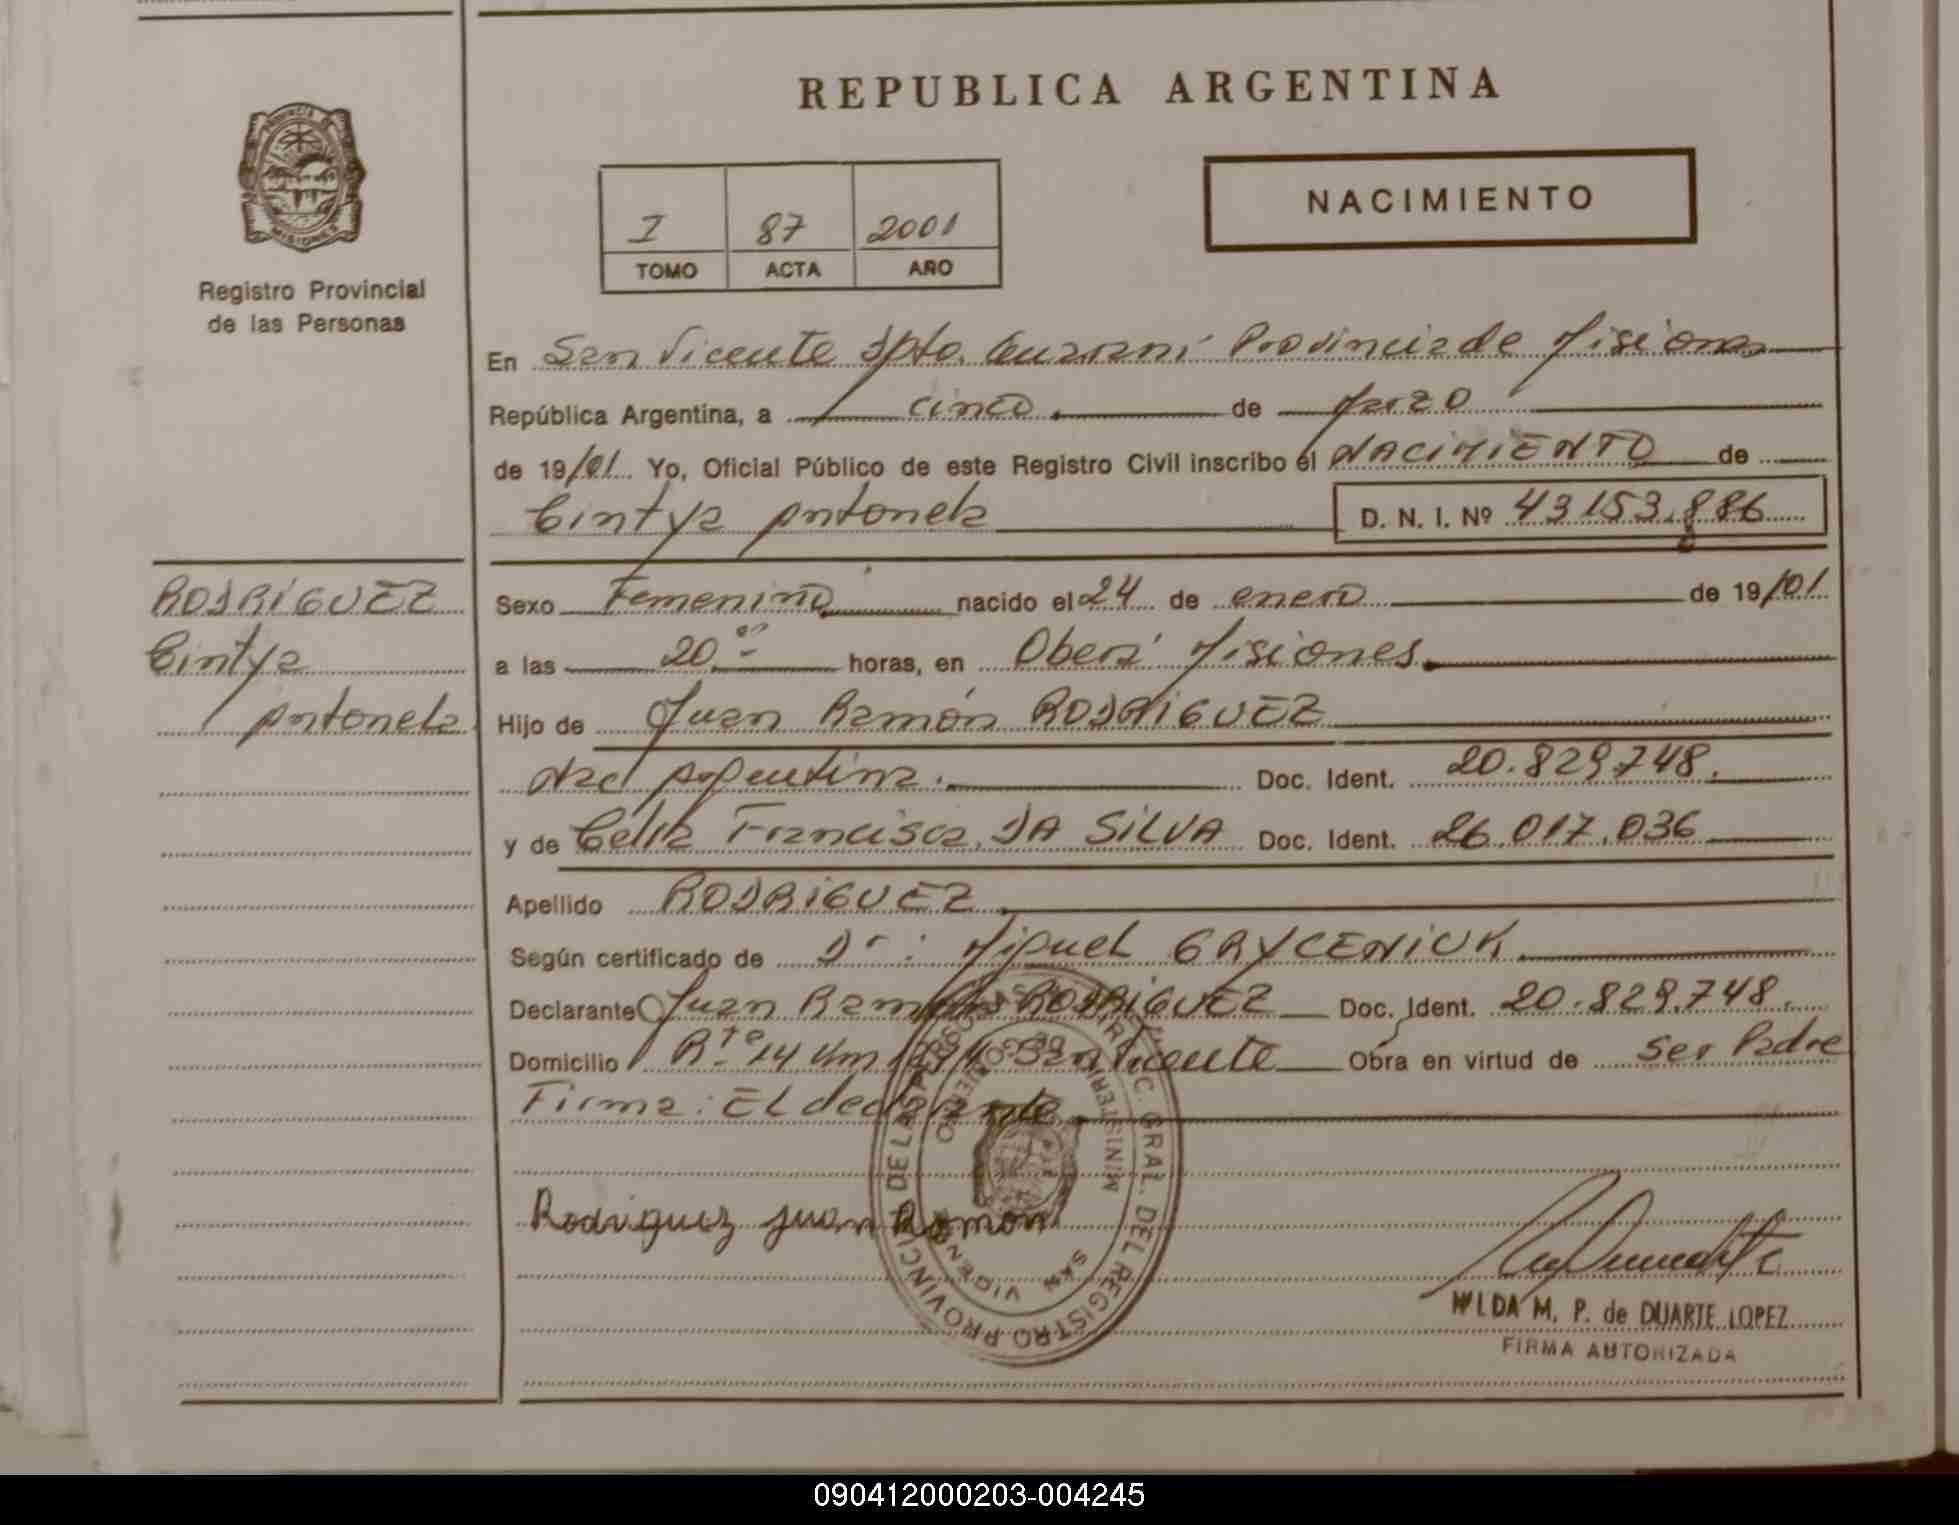 REPUBLICA ARGENTINA
PROVINCIA DE
MISIONES
Registro Provincial
de las Personas
I 87 2001
TOMO ACTA AÑO
NACIMIENTO
En San Vicente Dpto. Guaraní Provincia de Misiones
República Argentina, a cinco de Marzo
de 19/01 Yo, Oficial Público de este Registro Civil inscribo el NACIMIENTO de
Cintya Antonela D. N. I. Nº 43153.886
8
RODRIGUEZ
Cintya
Antonela
Sexo Femenino nacido el 24 de enero de 19/01
a las 20 horas, en Oberá Misiones
Hijo de Juan Ramón RODRIGUEZ
Nac Argentina. Doc. Ident. 20.829.748.
y de Celia Francisca DA SILVA Doc. Ident. 26.017.036
Apellido RODRIGUEZ
Según certificado de Dr: Miguel GRYCENIUK
Declarante Juan Ramón RODRIGUEZ Doc. Ident. 20.829.748.
Domicilio R.ta 14 Km San Vicente Obra en virtud de ser Padre
Firma: El declarante
Rodriguez Juan Ramón
DIREC. GRAL. DEL REGISTRO PROVINCIAL DE LAS PERSONAS
MINISTERIO DE GOBIERNO
SAN VICENTE
HILDA M. P. de DUARTE LOPEZ
FIRMA AUTORIZADA
090412000203-004245